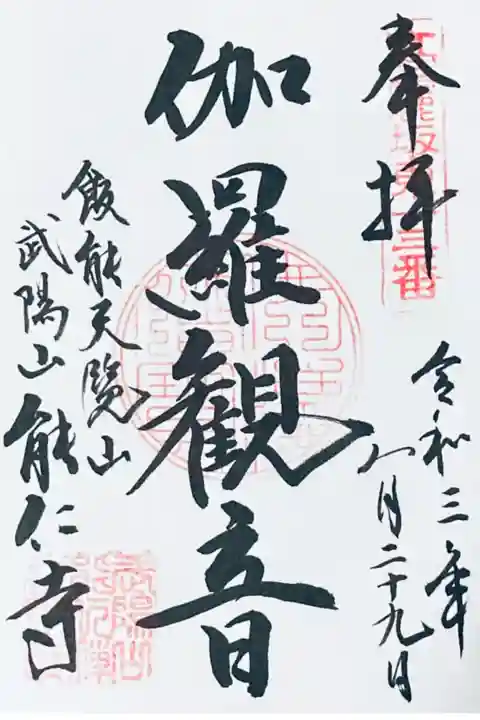 奉拝
令和三年
八月二十九日
伽羅観音
飯能天覧山
武陽山能仁寺